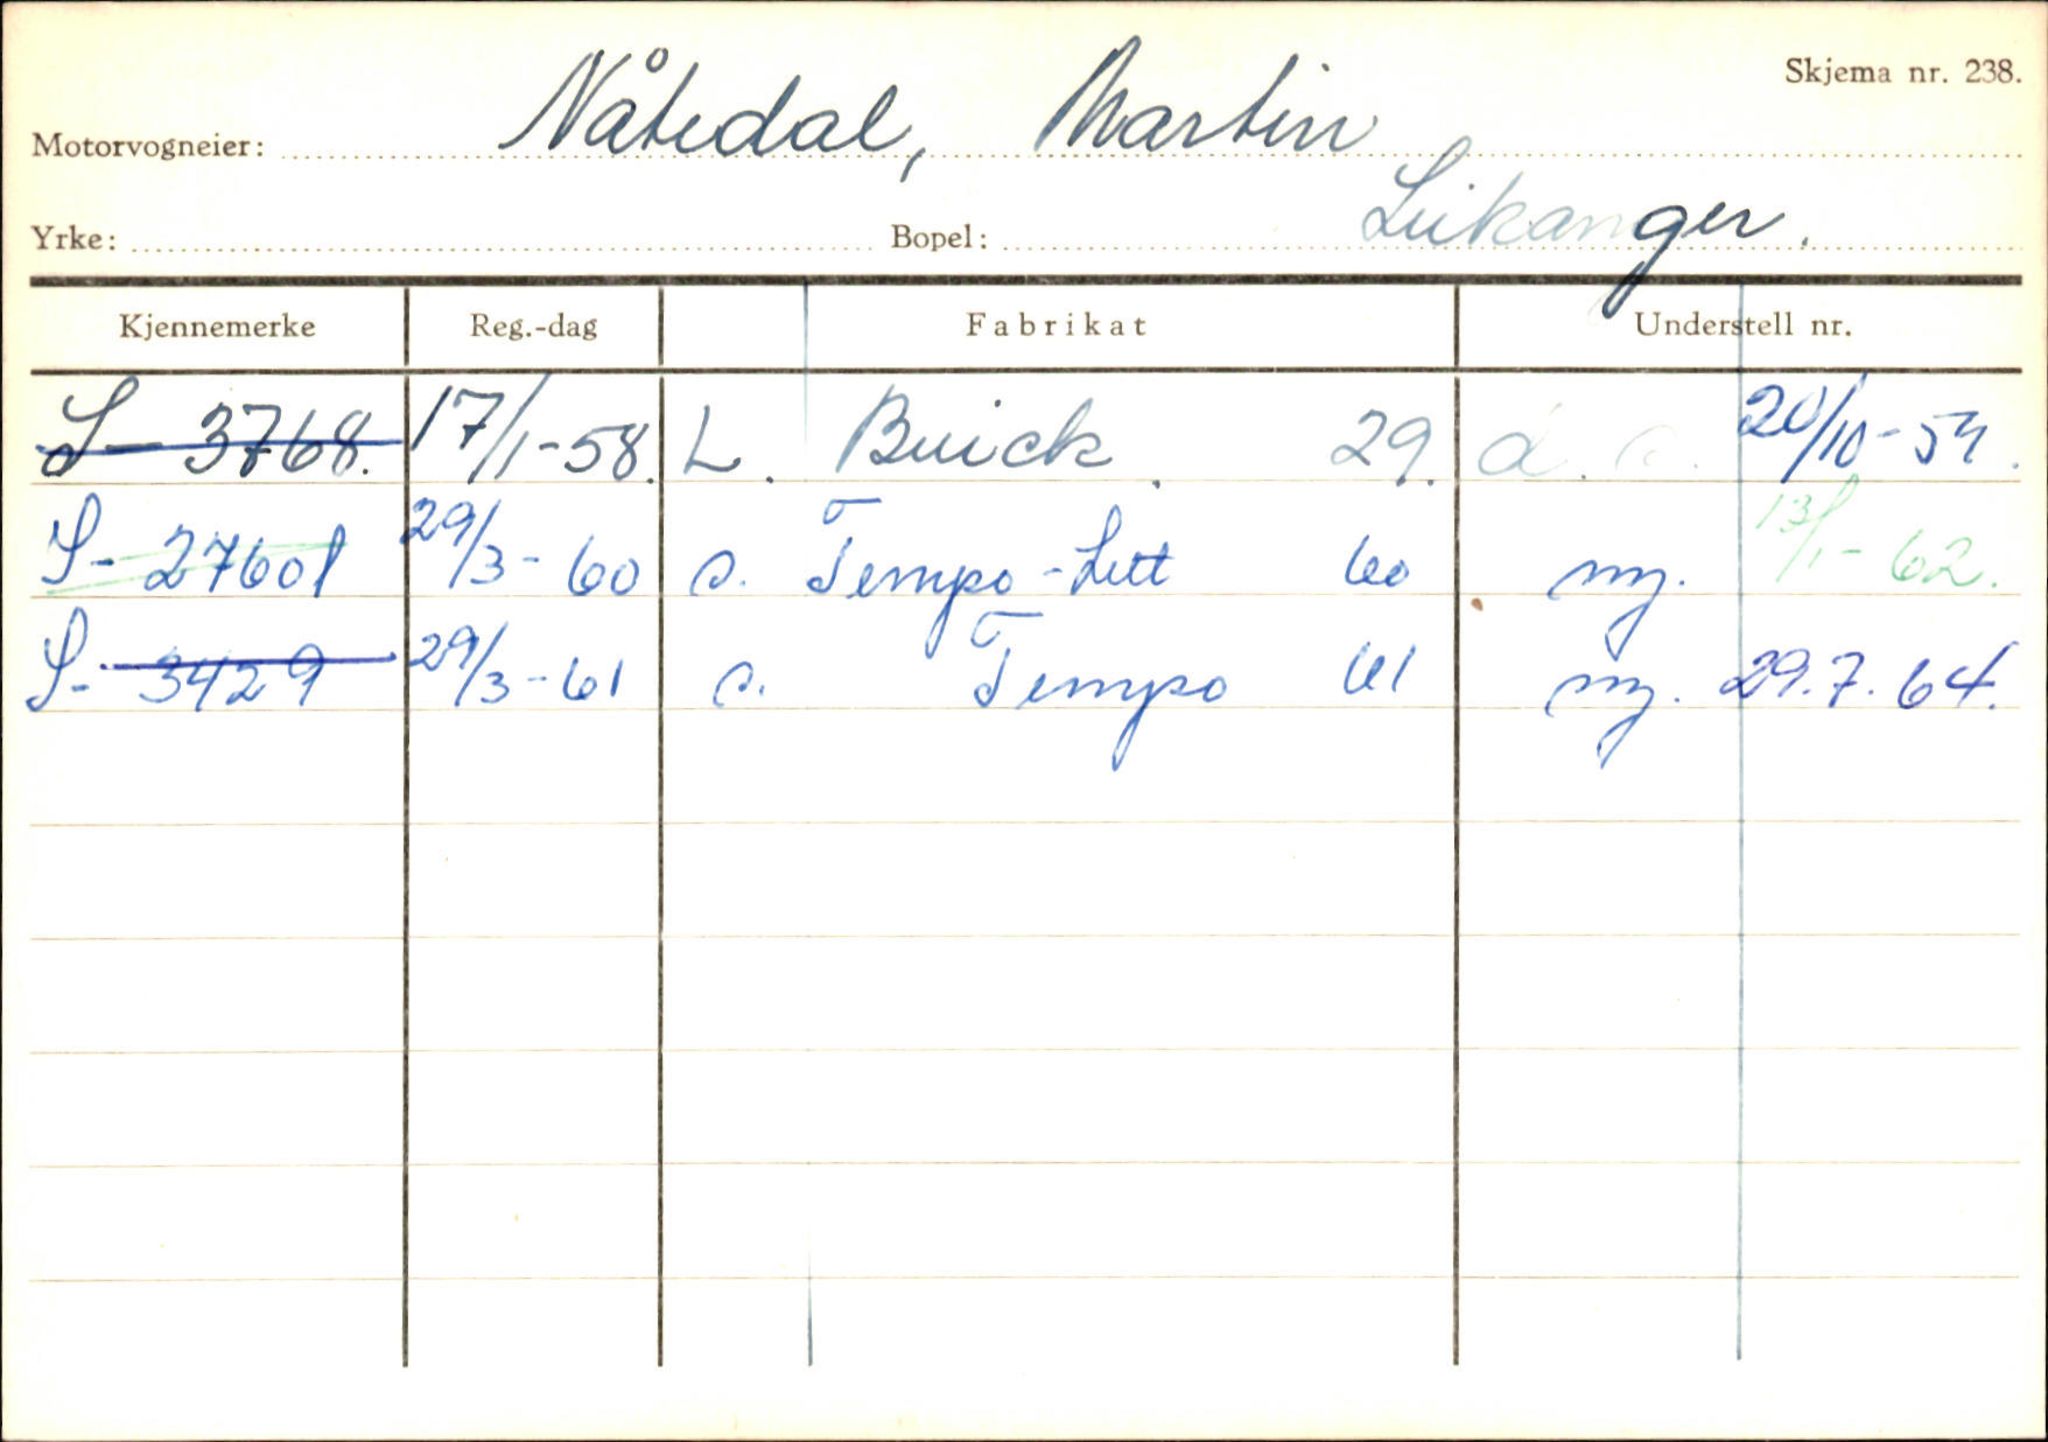 Skjema nr. 238.
Motorvogneier: Nåtedal, Martin
Yrke: Bopel: Leikanger.
Kjennemerke Reg.-dag Fabrikat Understell nr.
S-3768. 17/1-58. L. Buick. 29. d. 20/10-59.
S-27601 29/3-60 c. Tempo-Lett 60 ny. 13/1-62.
S-3429 29/3-61 c. Tempo 61 ny. 29.7.64.